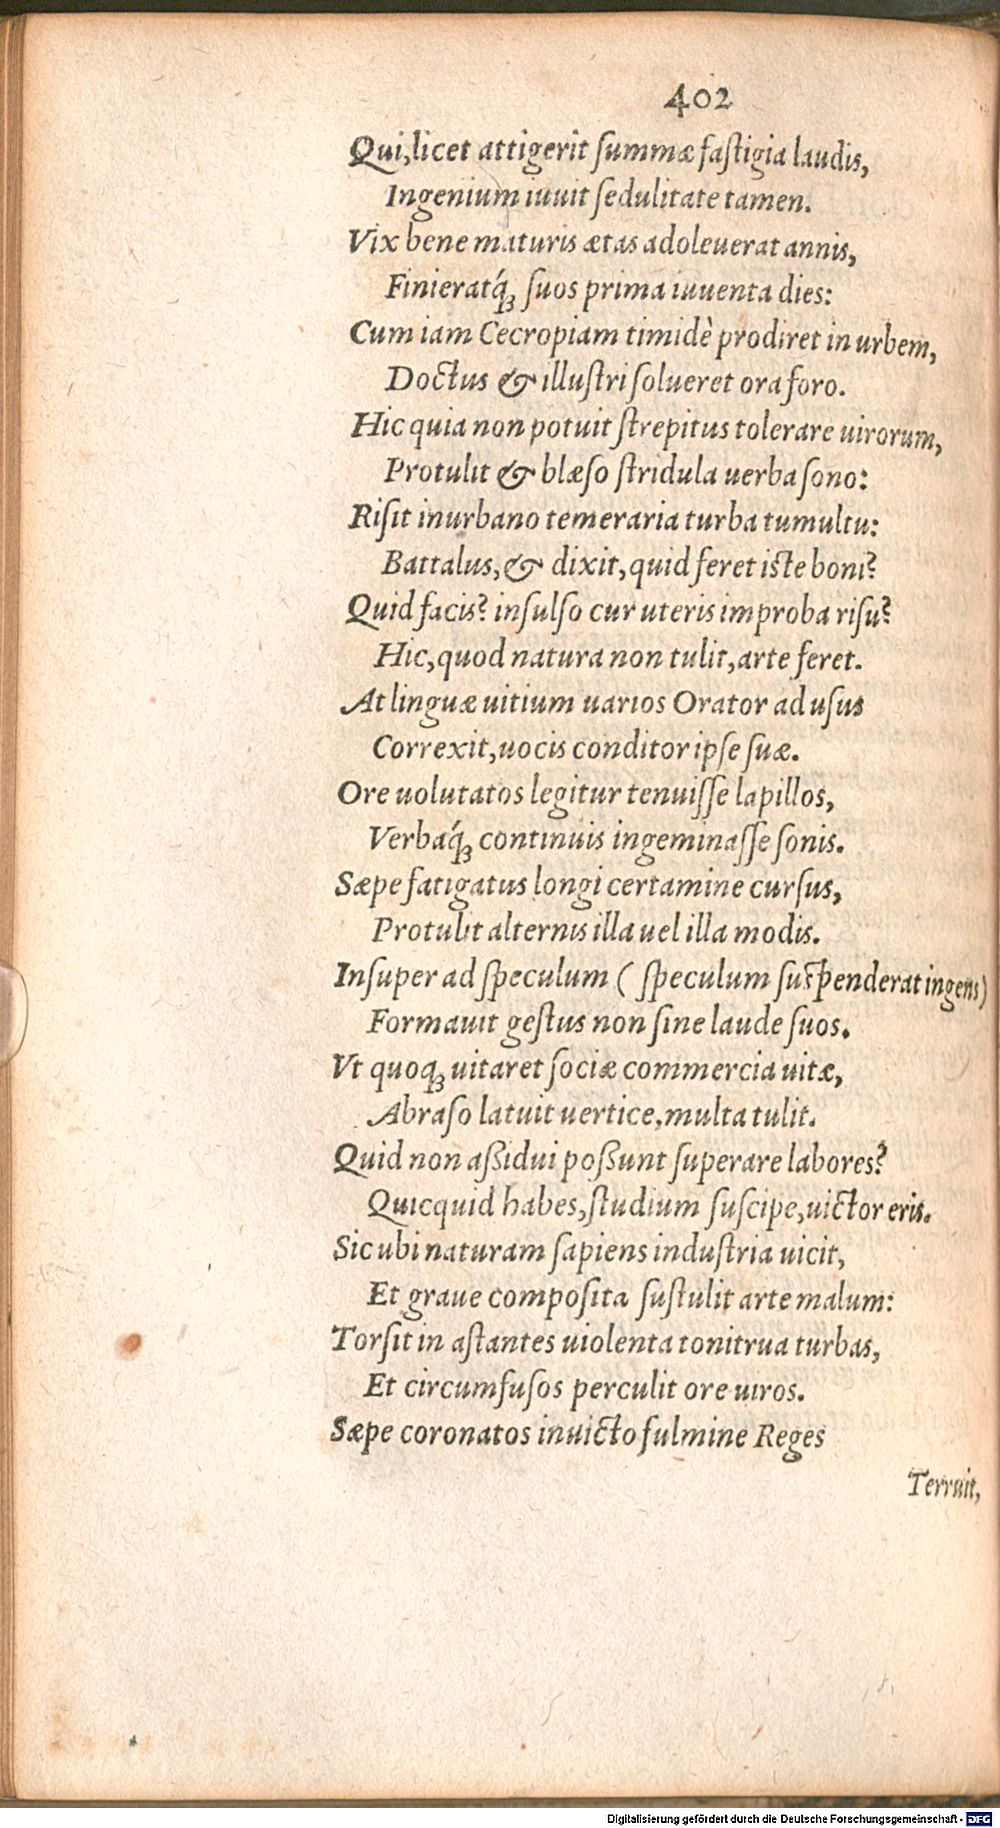 402
Qui, licet attigerit summæ fastigia laudis,
Ingenium iuuit sedulitate tamen.
Vix bene maturis ætas adoleuerat annis,
Finieratq́ꝫ suos prima iuuenta dies:
Cum iam Cecropiam timidè prodiret in urbem,
Doctus & illustri solueret ora foro.
Hic quia non potuit strepitus tolerare uirorum,
Protulit & blæso stridula uerba sono:
Risit inurbano temeraria turba tumultu:
Battalus, & dixit, quid feret iste boni?
Quid facis? insulso cur uteris improba risu?
Hic, quod natura non tulit, arte feret.
At linguæ uitium uarios Orator ad usus
Correxit, uocis conditor ipse suæ.
Ore uolutatos legitur tenuisse lapillos,
Verbaq́ꝫ continuis ingeminasse sonis.
Sæpe fatigatus longi certamine cursus,
Protulit alternis illa uel illa modis.
Insuper ad speculum ( speculum suspenderat ingens)
Formauit gestus non sine laude suos.
Vt quoqꝫ uitaret sociæ commercia uitæ,
Abraso latuit uertice, multa tulit.
Quid non aßidui poßunt superare labores?
Quicquid habes, studium suscipe, uictor eris.
Sic ubi naturam sapiens industria uicit,
Et graue composita sustulit arte malum:
Torsit in astantes uiolenta tonitrua turbas,
Et circumfusos perculit ore uiros.
Sæpe coronatos inuicto fulmine Reges
Terruit,
Digitalisierung gefördert durch die Deutsche Forschungsgemeinschaft - DFG